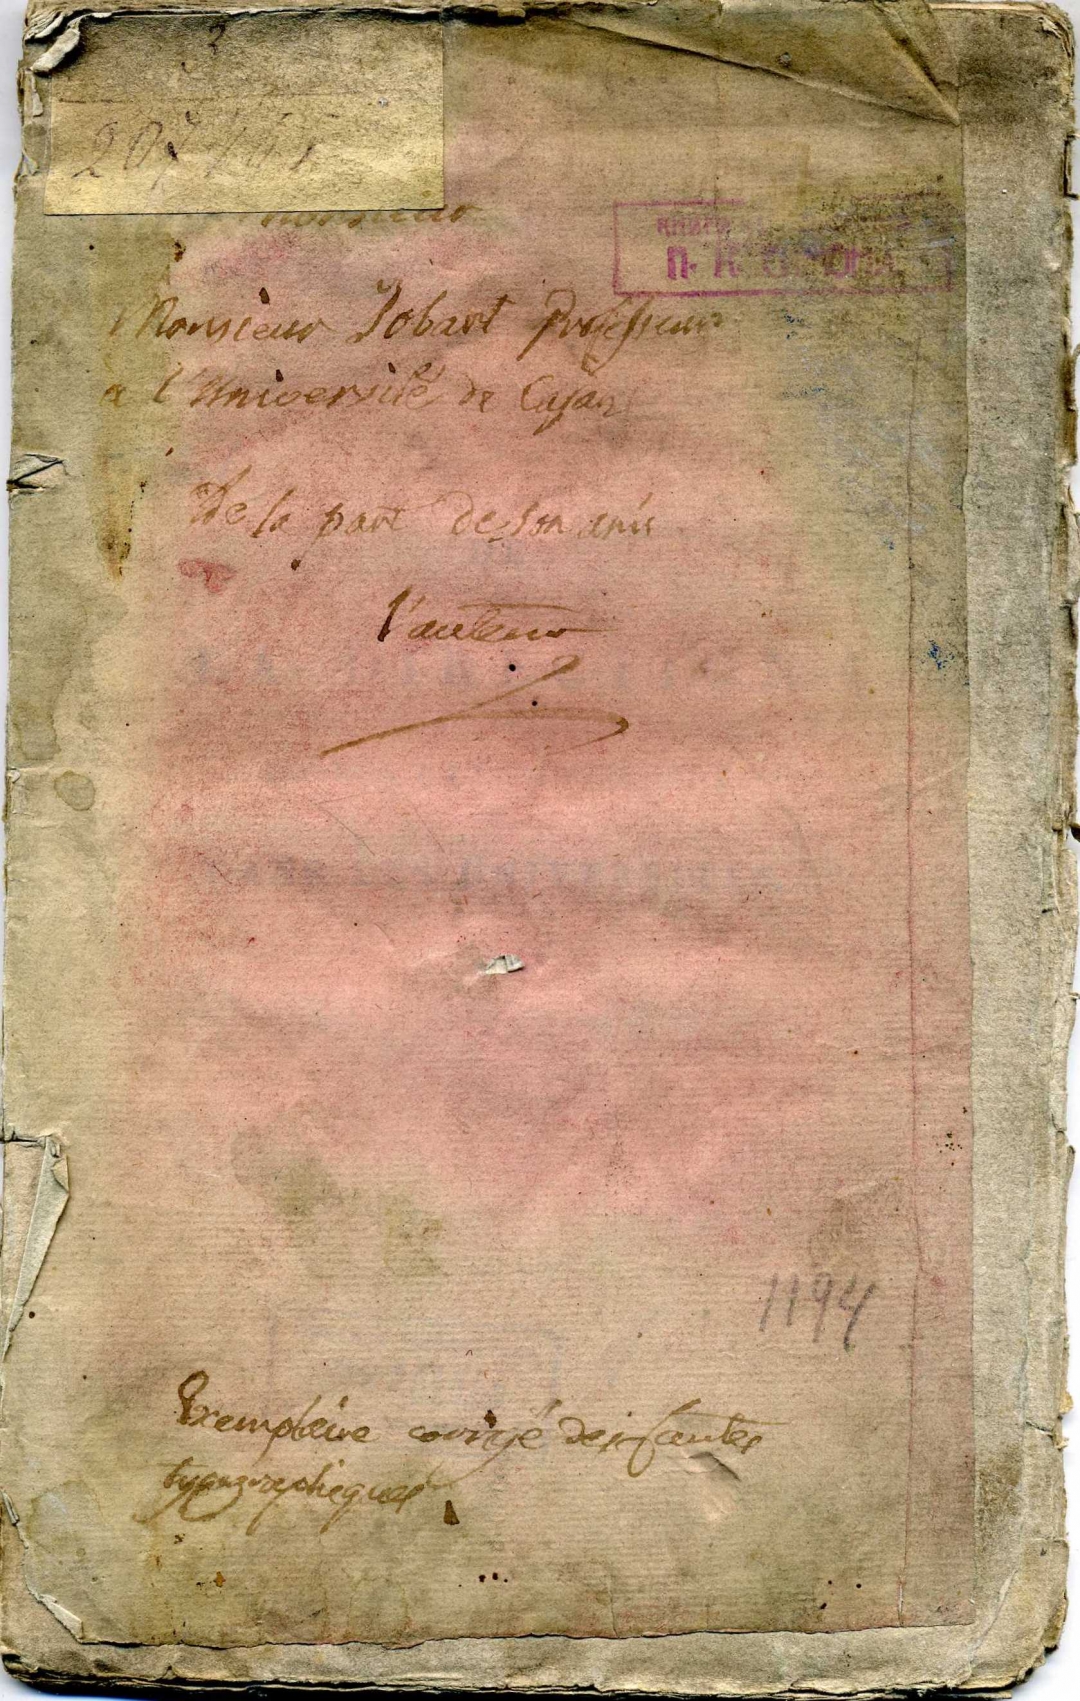 Monsieur
Monsieur Jobart Professeur
a l'Université de Casan
de la part de son ami
l'auteur
1194
Exemplaire corrigé des fautes
typographiques